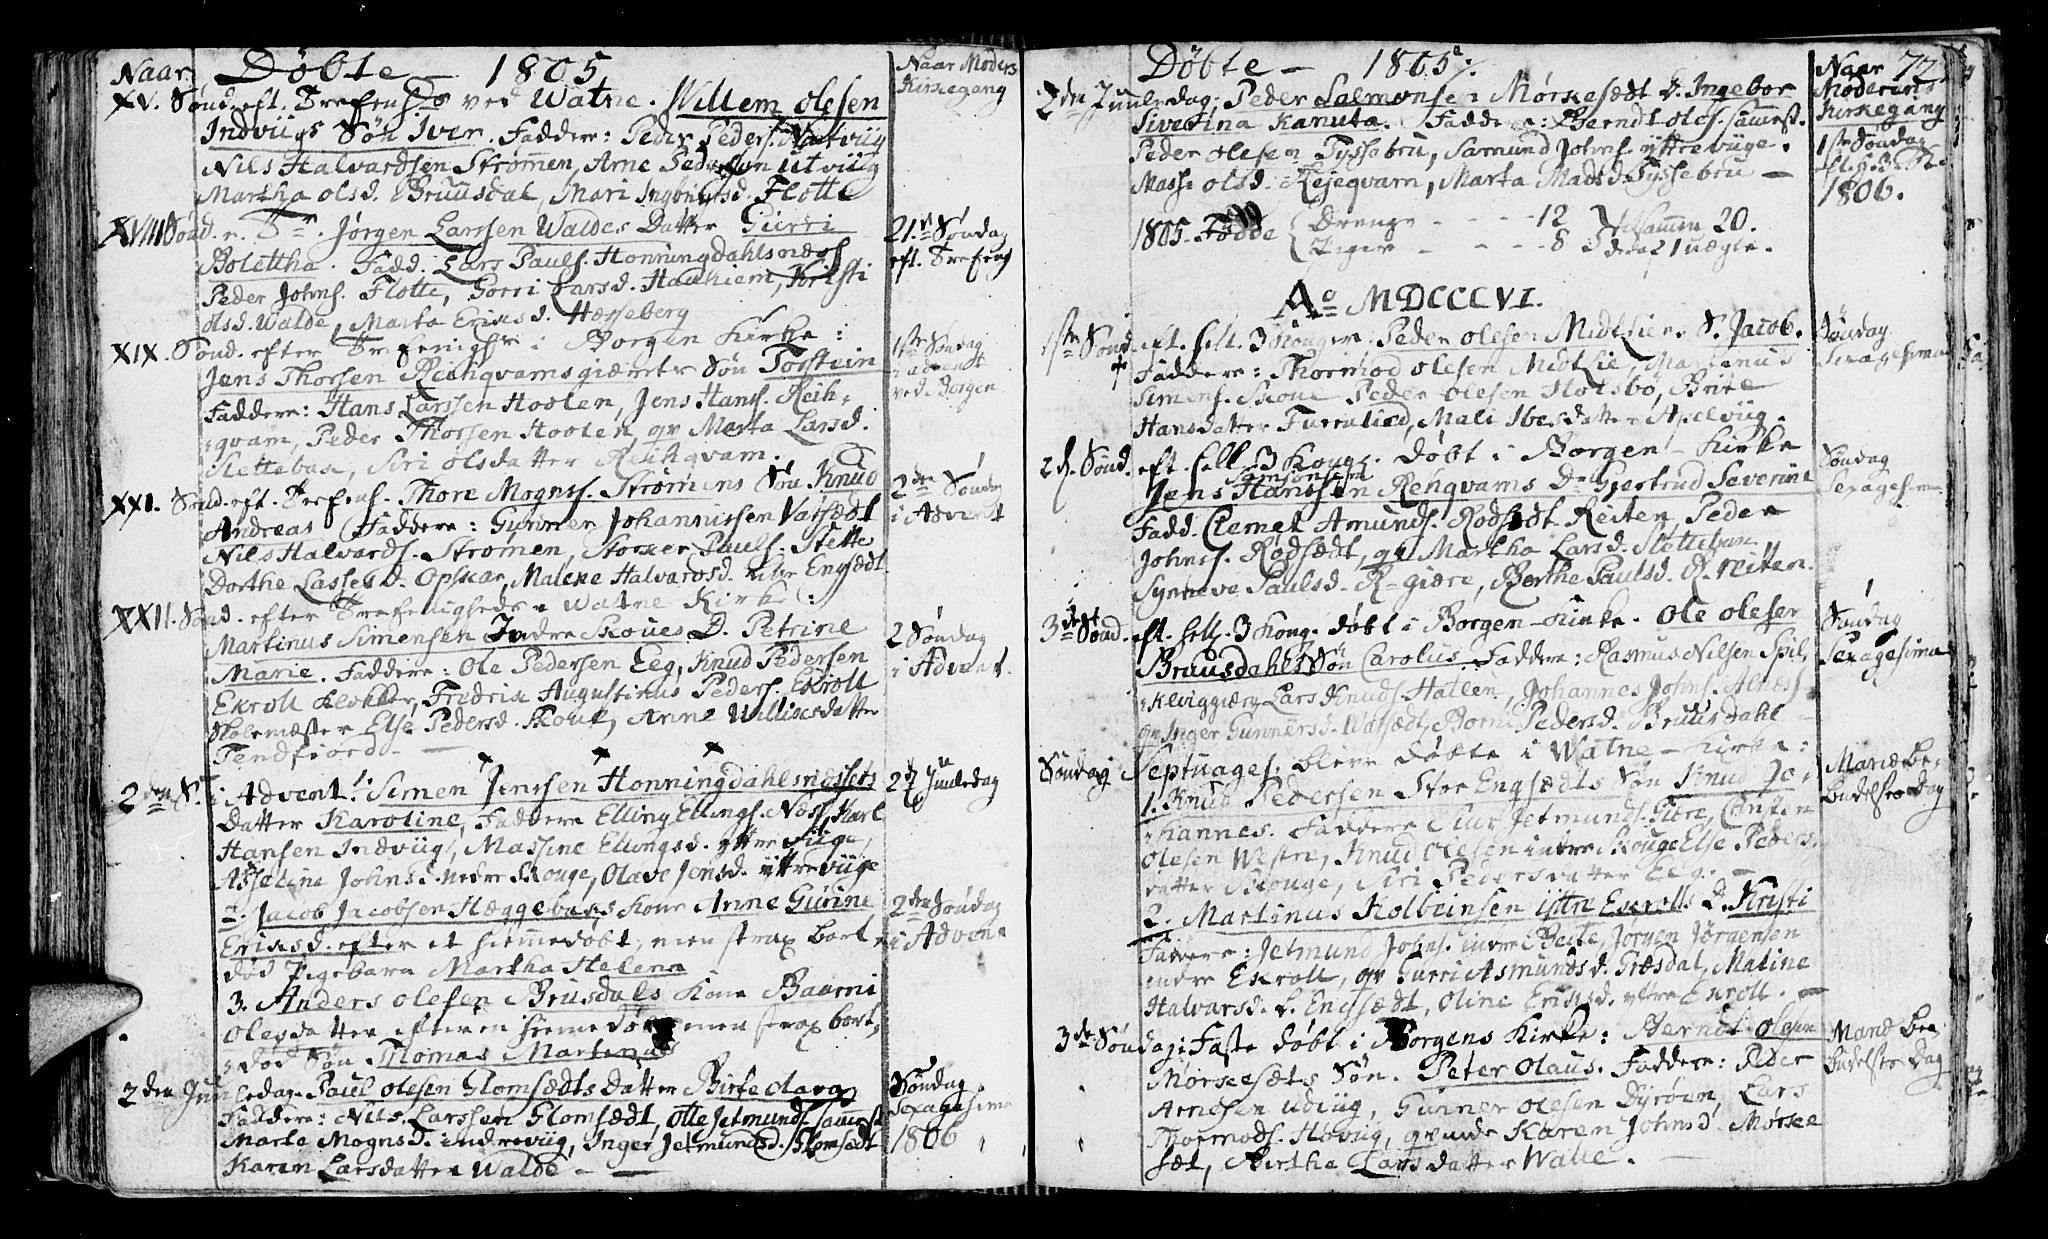 Naar Døbte — 1805
Naar Moders
Kirkegang
XV. Sønd. eft. Trefens. Do ved Watne. Willem olesen
Indviigs Søn Iver. Faddere: Peder Peders. Natviig
Nils Halvardsen Strømen, Arne Pedersøn utviig
Martha olsd. Bruusdal, Mari Ingbrigtsd. Flotte
XVIII Sønd. e. Tr. Jørgen Larssen Waldes Datter Gurri
Bolettha. Fadd. Lars Pauls. Honningdahlsnæss
Peder Johns. Flotte, Gorri Larsd. Haahiem, Kristi
olsd. Walde, Marta Eriksd. Hæsseberg
21. Søndag
eft. Trefens
XIX. Sønd. efter Trefenighed i Borgen Kirke:
Jens Thorsen Rekqvamsgiærets Søn Torstein
Faddere: Hans Larssen Hoolen, Jens Hans. Reih-
qvam, Peder Thorsen Hoolen, qv Marta Larsd.
Slettebae, Siri olsdatter Reichqvam.
1ste Søndag
i advent
ved Borgen
XXI. Sønd. eft. Trefens. Thore Mognss. Strømens Søn Knud
Andreas Faddere: Gunner Johannissen Vatsædt
Nils Halvards. Strømen, Storker Pauls. Slette
Dorthe Lassesd. Opskar, Malene Halvardsd. Engsædt
2den Søndag
i Advent
XXII. Sønd. efter Trefenigheds i Watne Kirke:
Martinus Simensen Indre Skoues D. Petrine
Marie. Faddere: Ole Pedersen Eeg, Knud Pedersen
Exroll Klokker, Fredrik Augustinus Peders. Exroll
Skolemester Else Pedersd. Skoue, Anne Williksdatter
Tendfiord —
2 Søndag
i Advent.
2den S. i Advent. 1. Simen Jenssen Honningdahlsnæssets
Datter Karoline, Faddere Elling Ellings. Nøss, Karl
Hansen Indviig, Massine Ellingsd. yttre
Asseline Johnsd. nedre Skouge, Olave Jensd. yttreviige
2d Juuledag
2. Jacob Jacobsen Hæggebaks Kone Anne Gurine
Eriksd. efter et hiemmedøbt, men strax bort
død Pigebarn Martha Helena
2den Søndag
i Advent
3. Anders olesen Brusdals Kone Baarni
Olesdatter efter en hiemmedøbt men strax bort-
død Søn Thomas Martinus
2den Juuledag. Paul olesen Glomsædts Datter Birte
Faddere: Nils Larssen Glomsædt, Olle Jetmunds. sammest.
Marte Mognsd. indreviig, Inger Jetmundsd. Glomsædt
Karen Larsdatter Walde —
Søndag
Sexagesima
1806
Døbte — 1805
Naar 77
Moderens
Kirkegang
2den Juuledag, Peder Salmonsen Mørkesædt D. Ingebor
Siverina Kanuta. Faddere: Berndt oles. sammest.
Peder olesen Tyssebru, Samund Johns. yttreviige.
Masse olsd. Rejeqvam, Marta Madsd. Tyssebru —
1ste Søndag
1806.
1805. Fødde Drenge - - - 12 tilsammen 20.
Piger - - - 8 deraf 1 uægte.
Ao MDCCCVI.
1ste Sønd. eft. hell. 3 Konger. Peder olesen Midtliens S. Jacob.
Faddere: Thormod olesen Midtlie, Martinus
Simens. Skoue Peder olesen Holsbø, Brite
Hansdatter Furrulied, Mali Ibersdatter Apelviig.
Søndag
Sexagesima
2d. Sønd. eft. hell. 3 Kong. døbt i Borgen Kirke
Samsonsen
Jens Hanssen Rehqvams Dr Gjertrud Severine
Fadd. Clemet Amunds. Rødsædt. Reiten, Peder
Johns. Rødsædt, qv Martha Larsd. Slettebau
Synneve Paulsd. R-giære, Berthe Paulsd. R. reiten.
Søndag
Sexagesima
3de Sønd. eft. hell. 3 Kong. døbt i Borgen Kirke. Ole olesen
Bruusdahls Søn Carolus. Faddere: Rasmus Nilsen Spil-
Lars Knuds. Hatlen, Johannes Johns. Alnæss
qv Inger Gunnersd. Watsædt, Borni Pedersd. Bruusdahl
Søndag
Sexagesima
Søndag Septuages. bleve døbte i Watne Kirke:
1. Knud Pedersen Stor Engsædts Søn Knud Jo-
hannes. Faddere Siur Jetmunds. Giære, Carsten
Olesen Westre, Knud Olesen indre Skouge Else Peders-
datter Skouge, Siri Pedersdatter Eeg. —
Mariæ Be-
budelses Dag
2. Martinus Kolbeinsen ijttre Exrolls D. Kristi
Faddere: Jetmund Johns. indre Beite, Jørgen Jørgensen
indre Exroll, qv Gurri Asmundsd. Præsdal, Maline
Halvarsd. L. Engsædt, Oline Eriksd. yttre Exroll. —
3de Søndag i Faste døbt i Borgens Kirke: Berndt olesen
Mørkesæts Søn. Peter Olaus. Faddere: Peder
Arnesen udviig, Gunner olesen Dyrøen, Lars
Thormods. Høviig, qvinde Karen Johnsd. Mørkee
sæt, Birtha Larsdatter Walle. —
Mariæ Be-
budelses Dag